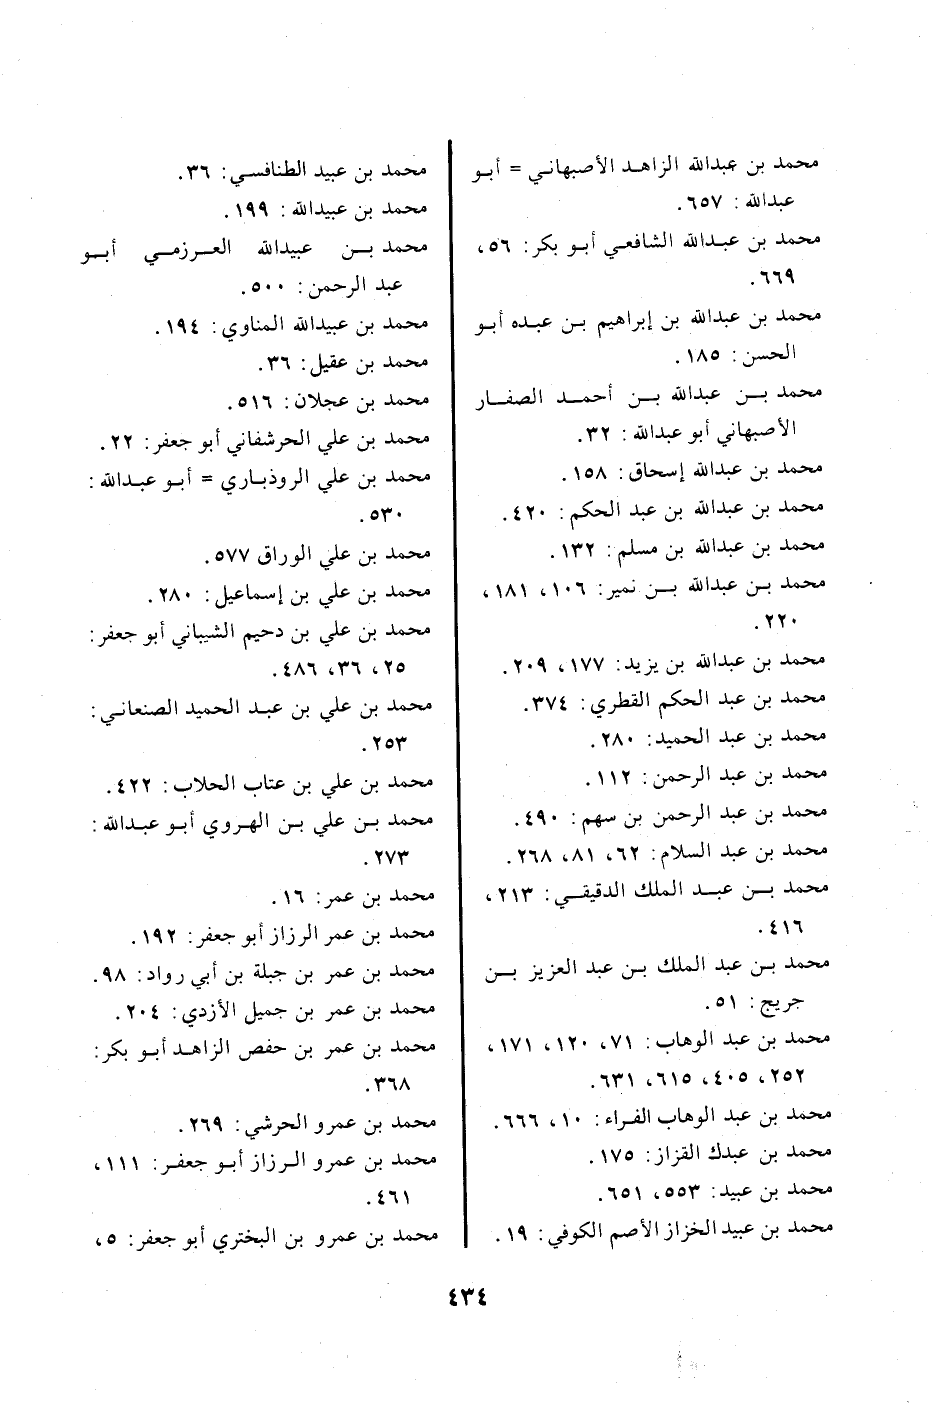 محمد بن عبدالله الزاهد الأصبهاني = أبو
عبدالله : ٦٥٧.
محمد بن عبدالله الشافعي أبو بكر: ٥٦،
٦٦٩.
محمد بن عبدالله بن إبراهيم بن عبده أبو
الحسن: ١٨٥.
محمد بن عبدالله بن أحمد الصفار
الأصبهاني أبو عبدالله : ٣٢.
محمد بن عبدالله إسحاق: ١٥٨.
محمد بن عبدالله بن عبد الحكم: ٤٢٠.
محمد بن عبدالله بن مسلم: ١٣٢.
محمد بن عبدالله بن نمير: ١٠٦، ١٨١،
٢٢٠.
محمد بن عبدالله بن يزيد: ١٧٧، ٢٠٩.
محمد بن عبد الحكم القطري: ٣٧٤.
محمد بن عبد الحميد: ٢٨٠.
محمد بن عبد الرحمن: ١١٢.
محمد بن عبد الرحمن بن سهم: ٤٩٠.
محمد بن عبد السلام: ٦٢، ٨١، ٢٦٨.
محمد بن عبد الملك الدقيقي: ٢١٣،
٤١٦.
محمد بن عبد الملك بن عبد العزيز بن
جريج: ٥١.
محمد بن عبد الوهاب: ٧١، ١٢٠، ١٧١،
٢٥٢، ٤٠٥، ٦١٥، ٦٣١.
محمد بن عبد الوهاب الفراء: ١٠، ٦٦٦.
محمد بن عبدك القزاز: ١٧٥.
محمد بن عبيد: ٥٥٣، ٦٥١.
محمد بن عبيد الخزاز الأصم الكوفي: ١٩.
محمد بن عبيد الطنافسي: ٣٦.
محمد بن عبيدالله: ١٩٩.
محمد بن عبيدالله العرزمي أبو
عبد الرحمن: ٥٠٠.
محمد بن عبيدالله المناوي: ١٩٤.
محمد بن عقيل: ٣٦.
محمد بن عجلان: ٥١٦.
محمد بن علي الحرشفاني أبو جعفر: ٢٢.
محمد بن علي الروذباري = أبو عبدالله:
٥٣٠.
محمد بن علي الوراق ٥٧٧.
محمد بن علي بن إسماعيل: ٢٨٠.
محمد بن علي بن دحيم الشيباني أبو جعفر:
٢٥، ٣٦، ٤٨٦.
محمد بن علي بن عبد الحميد الصنعاني:
٢٥٣.
محمد بن علي بن عتاب الحلاب: ٤٢٢.
محمد بن علي بن الهروي أبو عبدالله:
٢٧٣.
محمد بن عمر: ١٦.
محمد بن عمر الرزاز أبو جعفر: ١٩٢.
محمد بن عمر بن جبلة بن أبي رواد: ٩٨.
محمد بن عمر بن جميل الأزدي: ٢٠٤.
محمد بن عمر بن حفص الزاهد أبو بكر:
٣٦٨.
محمد بن عمرو الحرشي: ٢٦٩.
محمد بن عمرو الرزاز أبو جعفر: ١١١،
٤٦١.
محمد بن عمرو بن البختري أبو جعفر: ٥،
٤٣٤